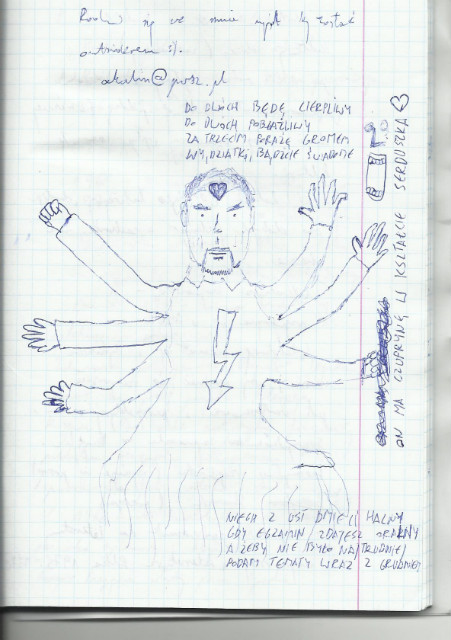 się we mnie myśl by zostać
outsiderem :).
@posz.pl
DO DWÓCH BĘDĘ CIERPLIWY
DO DWÓCH POBŁAŻLIWY
ZA TRZECIM PORAŻĘ GROMEM
WY, DZIATKI, BĄDŹCIE ŚWIADOME
ON MA CZUPRYNĘ W KSZTAŁCIE SERDUSZKA
NIECH Z UST DMIE CI HALNY
GDY EGZAMIN ZDAJESZ ORALNY
A ŻEBY NIE BYŁO NAJTRUDNIEJ
PODAM TEMATY WRAZ Z GRUDNIEM